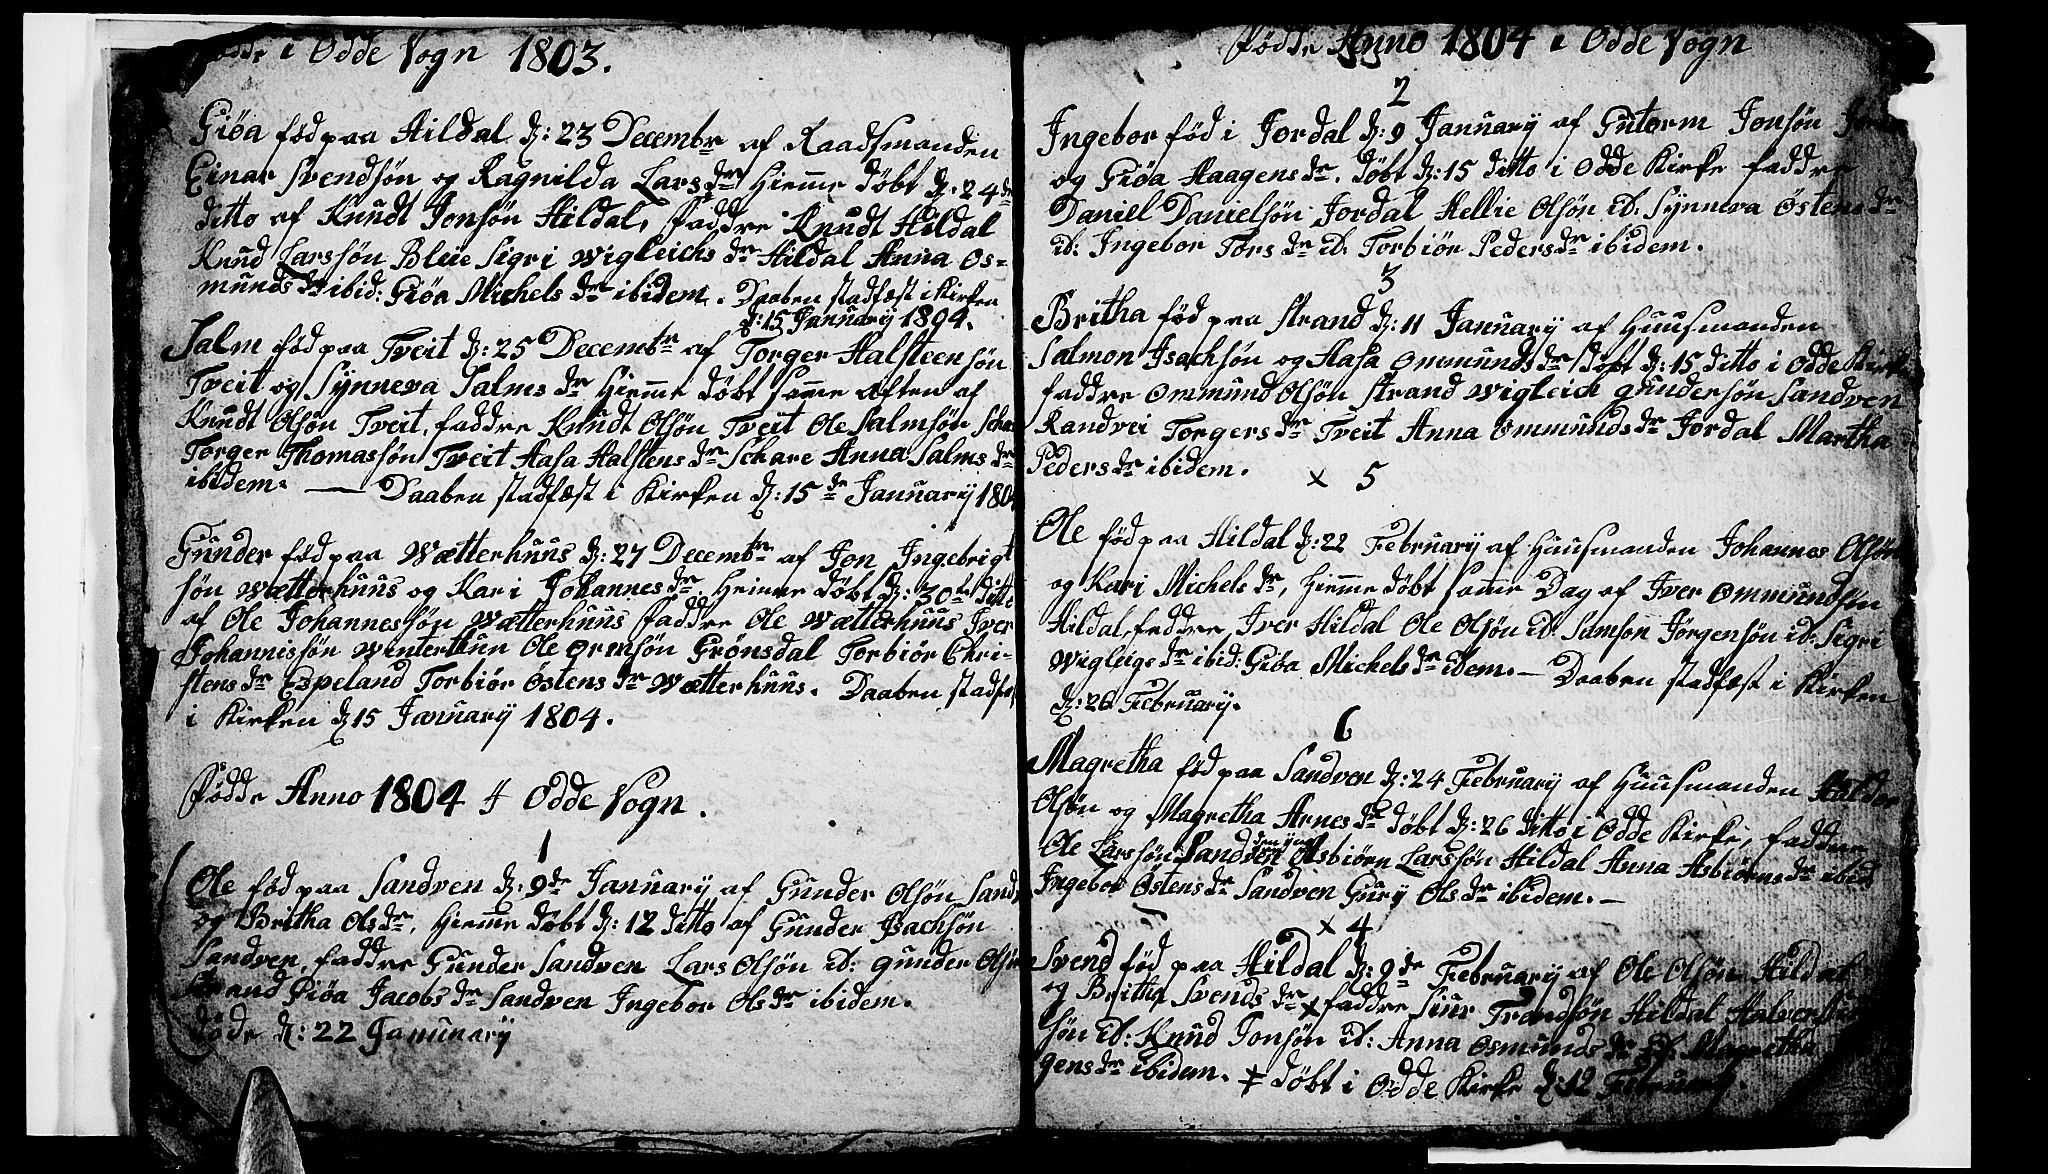 Fødde i Odde Sogn 1803.
Giøa fød paa Hildal d: 23 Decembr af Raadsmanden
Einar Svendsøn og Ragnilda Larsdr Hieme døbt d: 24de
ditto af Knudt Jonsøn Hildal, faddre Knudt Hildal
Knud Larssøn Bleie Sigri Wigleichsdr Hildal Anna Os=
mundsdr ibid: Giøa Michelsdr ibidem. Daaben stadfæst i Kirken
d: 15 January 1804.
Salm fød paa Tveit d: 25 Decembr af Torger Halsteensøn
Tveit og Synneva Salmsdr Hieme døbt same Aften af
Knudt Olsøn Tveit, faddre Knudt Olsøn Tveit Ole Salmsøn
Torger Thomassøn Tveit Aasa Halstensdr Schare Anna Salmsdr
ibidem. — Daaben stadfæst i Kirken d: 15de January 1804
Gunder fød paa Wætterhuus d: 27 Decembr af Jon Ingebrigt
søn Wætterhuus og Kari Johannesdr. Heime døbt d: 30te ditto
af Ole Johannessøn Wætterhuus faddre Ole Wætterhuus Iver
Johannissøn Winterthun Ole Ormsøn Grønsdal Torbiør Chri-
stensdr Espeland Torbiør Østensdr Wætterhuus. Daaben stadfæst
i Kirken d 15 January 1804.
Fødde Anno 1804 I Odde Sogn.
1
Ole fød paa Sandven d: 9de January af Gunder Olsøn Sandv
og Britha Olsdr, Hieme døbt d: 12 ditto af Gunder Isachsøn
Sandven, faddre Gunder Sandven Lars Olsøn id: Gunder Olsøn
Strand Giøa Jacobsdr Sandven Ingebor Olsdr ibidem.
døde d: 22 January
Fødde Anno 1804 i Odde Sogn
2
Ingebor fød i Jordal d: 9 January af Gutorm Jonsøn Jordal
og Giøa Haagensdr. døbt d: 15 ditto i Odde Kirke faddre
Daniel Danielsøn Jordal Hellie Olsøn id: Synneva Østensdr
id: Ingebor Torsdr id: Torbiør Pedersdr ibidem.
3
Britha fød paa Strand d: 11 January af Huusmanden
Salmon Isachsøn og Aasa Ommundsdr døbt d: 15 ditto i Odde Kirke
faddre Ommund Olsøn Strand Wigleich Gundersøn Sandven
Randvei Torgersdr Tveit Anna Ommundsdr Jordal Martha
Pedersdr ibidem.
x 5
Ole fød paa Hildal d: 22 February af Huusmanden Johannes Olsøn
og Kari Michelsdr, Hieme døbt same Dag af Iver Ommundsøn
Hildal, faddre Iver Hildal Ole Olsøn id: Samson Jørgensøn id: Sigri
Wigleigsdr ibid: Giøa Michelsdr idem. — Daaben stadfæst i Kirken
d: 26 February.
6
Magretha fød paa Sandven d: 24 February af Huusmanden Haldor
Olsøn og Magretha Arnesdr døbt d: 26 ditto i Odde Kirke, faddre
Ole Larssøn Sandven den yng Asbiørn Larssøn Hildal Anna Asbiørnsdr ibid
Ingebor Østensdr Sandven Gury Olsdr ibidem. —
x 4
Svend fød paa Hildal d: 9de February af Ole Olsøn Hildal
og Britha Svendsdr x faddre Siur Trondsøn Hildal Halvor
søn id: Knud Jonsøn id: Anna Osmundsdr id: Magretha
gensdr ibidem. x døbt i Odde Kirke d: 12 February.